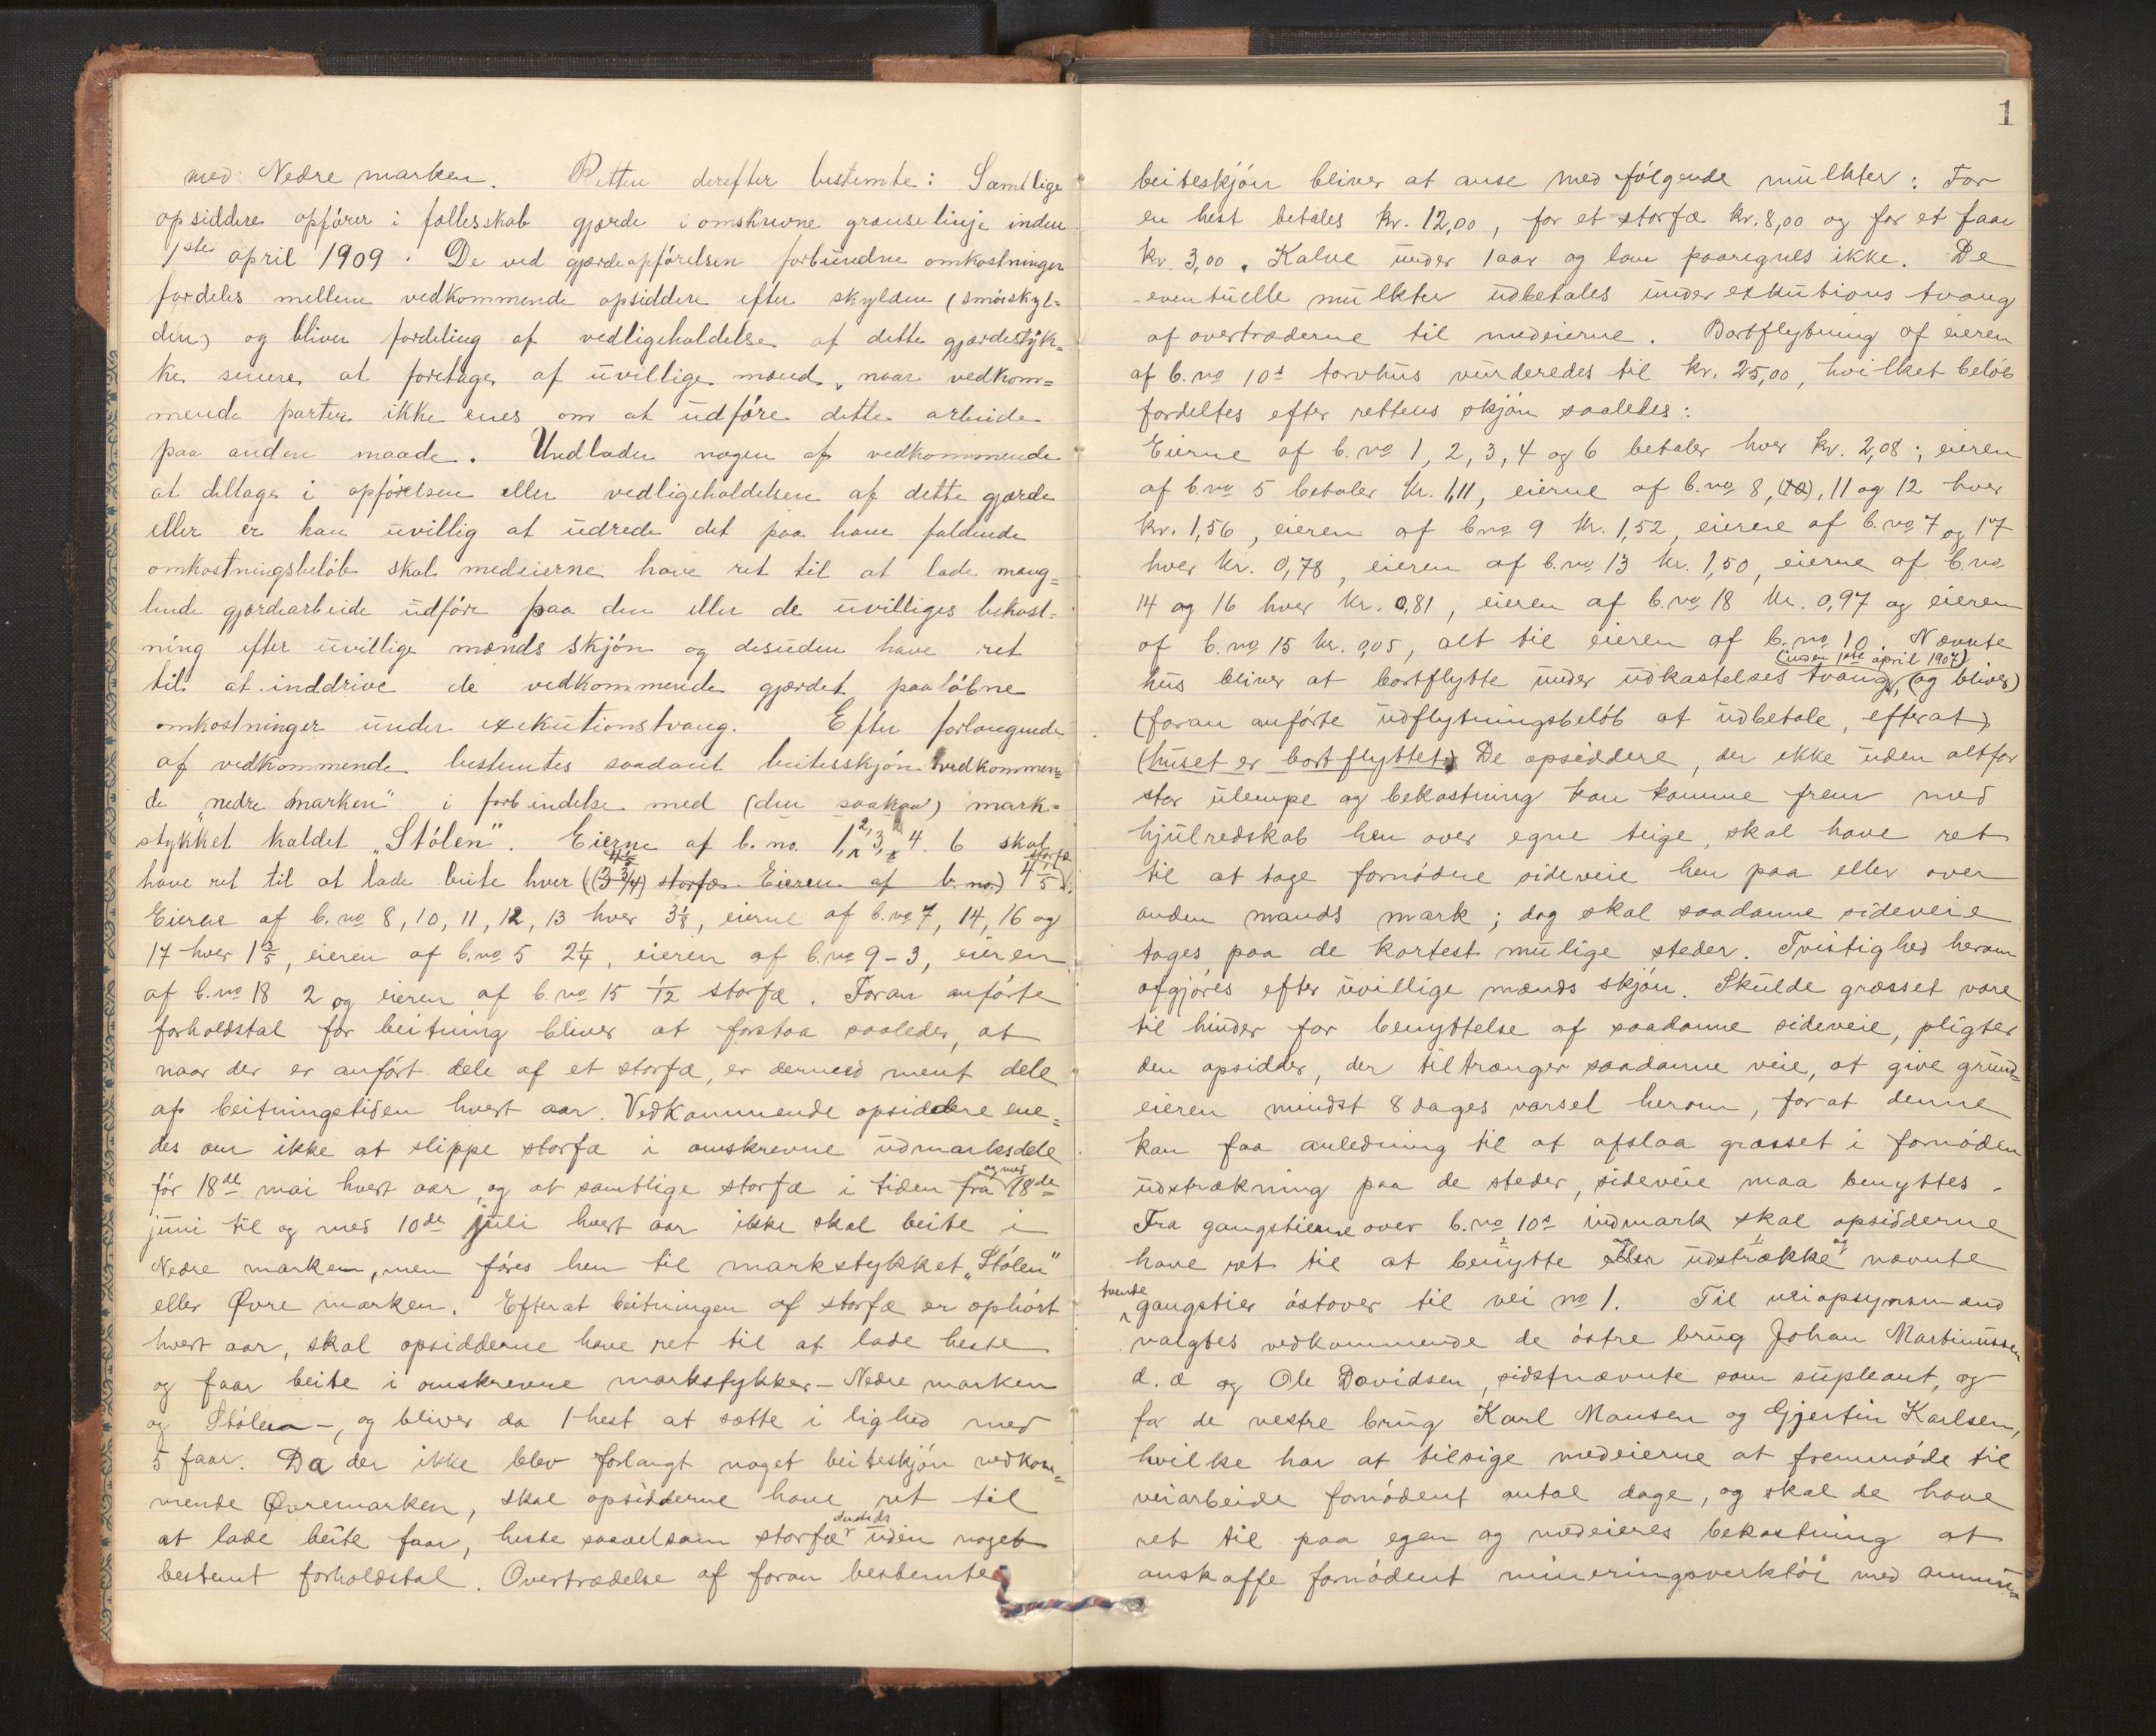 med Nedre marken. Retten derefter bestemte: Samtlige
opsiddere opfører i fællesskab gjærde i omskrevne grænselinje inden
1ste april 1909. De ved gjærdeopførelsen forbundne omkostninger
fordeles mellem vedkommende opsiddere efter skylden (smørskyl=
den) og bliver fordeling af vedligeholdelse af dette gjærdestyk=
ke senere at foretage af uvillige mænd, naar vedkom=
mende parter ikke enes om at udføre dette arbeide
paa anden maade. Undlader nogen af vedkommende
at deltage i opførelsen eller vedligeholdelsen af dette gjærde
eller er han uvillig at udrede det paa ham faldende
omkostningsbeløb skal medeierne have ret til at lade mang=
lende gjærdearbeide udføre paa den eller de uvilliges bekost=
ning efter uvillige mænds skjøn og desuden have ret
til at inddrive de vedkommende gjærdet paaløbne
omkostninger under exekutionstvang. Efter forlangende
af vedkommende bestemtes saadant beitesskjøn vedkommen=
de "nedre marken" i forbindelse med (den saakaa) mark=
stykket kaldet "Stølen". Eierne af b. no. 1, 2, 3, 4. 6 skal
have ret til at lade beite hver ((3 3/4) storfæ. Eieren af b. no.) 4 4/5 storfæ.
Eierne af b. no 8, 10, 11, 12, 13 hver 3 1/8, eierne af b. no 7, 14, 16 og
17 hver 1 3/5, eieren af b. no 5 2 1/4, eieren af b. no 9 - 3, eieren
af b. no 18 2 og eieren af b. no 15 1/12 storfæ. Foran anførte
forholdstal for beitning bliver at forstaa saaledes, at
naar der er anført dele af et storfæ, er dermed ment dele
af beitningstiden hvert aar. Vedkommende opsiddere ene=
des om ikke at slippe storfæ i omskrevne udmarksdele
før 18de mai hvert aar, og at samtlige storfæ i tiden fra og med 18de
juni til og med 10de juli hvert aar ikke skal beite i
Nedre marken, men føres hen til markstykket "Stølen"
eller Øvre marken. Efterat beitningen af storfæ er ophørt
hvert aar, skal opsidderne have ret til at lade heste
og faar beite i omskrevne markstykker - Nedre marken
og Stølen -, og bliver da 1 hest at sætte i lighed med
5 faar. Da der ikke blev forlangt noget beiteskjøn vedkom=
mende Øvremarken, skal opsidderne have ret til
at lade beite faar, heste saavelsom storfæ dersteds uden noget
bestemt forholdstal. Overtrædelse af foran bestemte
1
beiteskjøn bliver at anse med følgende mulkter: For
en hest betales kr. 12,00, for et storfæ kr. 8,00 og for et faar
kr. 3,00. Kalve under 1 aar og lam paaregnes ikke. De
eventuelle mulkter udbetales under exkutions tvang
af overtræderne til medeierne. Bortflytning af eieren
af b. no 10s torvhus vurderedes til kr. 25,00, hvilket beløb
fordeltes efter rettens skjøn saaledes:
Eierne af b. no 1, 2, 3, 4 og 6 betaler hver kr. 2,08; eieren
af b. no 5 betaler kr. 1,11, eierne af b. no 8, (10), 11 og 12 hver
kr. 1,56, eieren af b no 9 kr. 1,52, eierene af b. no 7 og 17
hver kr. 0,78, eieren af b. no 13 kr. 1,50, eierne af b. no
14 og 16 hver kr. 0,81, eieren af b. no 18 kr. 0,97 og eieren
af b. no 15 kr. 0,05, alt til eieren af b. no 10. Nævnte
(inden 1ste april 1907)
hus bliver at bortflytte under udkastelses tvang, (og bliver)
(foran anførte udflytningsbeløb at udbetale, efterat)
(huset er bortflyttet) De opsiddere, der ikke uden altfor
stor ulempe og bekostning kan komme frem med
hjulredskab hen over egne teige, skal have ret
til at tage fornødne sideveie hen paa eller over
anden mands mark; dog skal saadanne sideveie
tages paa de kortest mulige steder. Tvistighed herom
afgjøres efter uvillige mænds skjøn. Skulde græsset være
til hinder for benyttelse af saadanne sideveie, pligter
den opsidder, der tiltrænger saadanne veie, at give grund=
eieren mindst 8 dages varsel herom, for at denne
kan faa anledning til at afslaa græsset i fornøden
udstrækning paa de steder, sideveie maa benyttes.
Fra gangstierne over b. no 10s indmark skal opsidderne
have ret til at benytte og udstrække nævnte
tvende gangstier østover til vei no 1. Til veiopsynsmænd
valgtes vedkommende de østre brug Johan Martinussen
d. æ og Ole Davidsen, sidstnævnte som supleant, og
for de vestre brug Karl Monsen og Gjertin Karlsen,
hvilke har at tilsige medeierne at fremmøde til
veiarbeide fornødent antal dage, og skal de have
ret til paa egen og medeieres bekostning at
anskaffe fornødent mineringsverktøi med ammu=